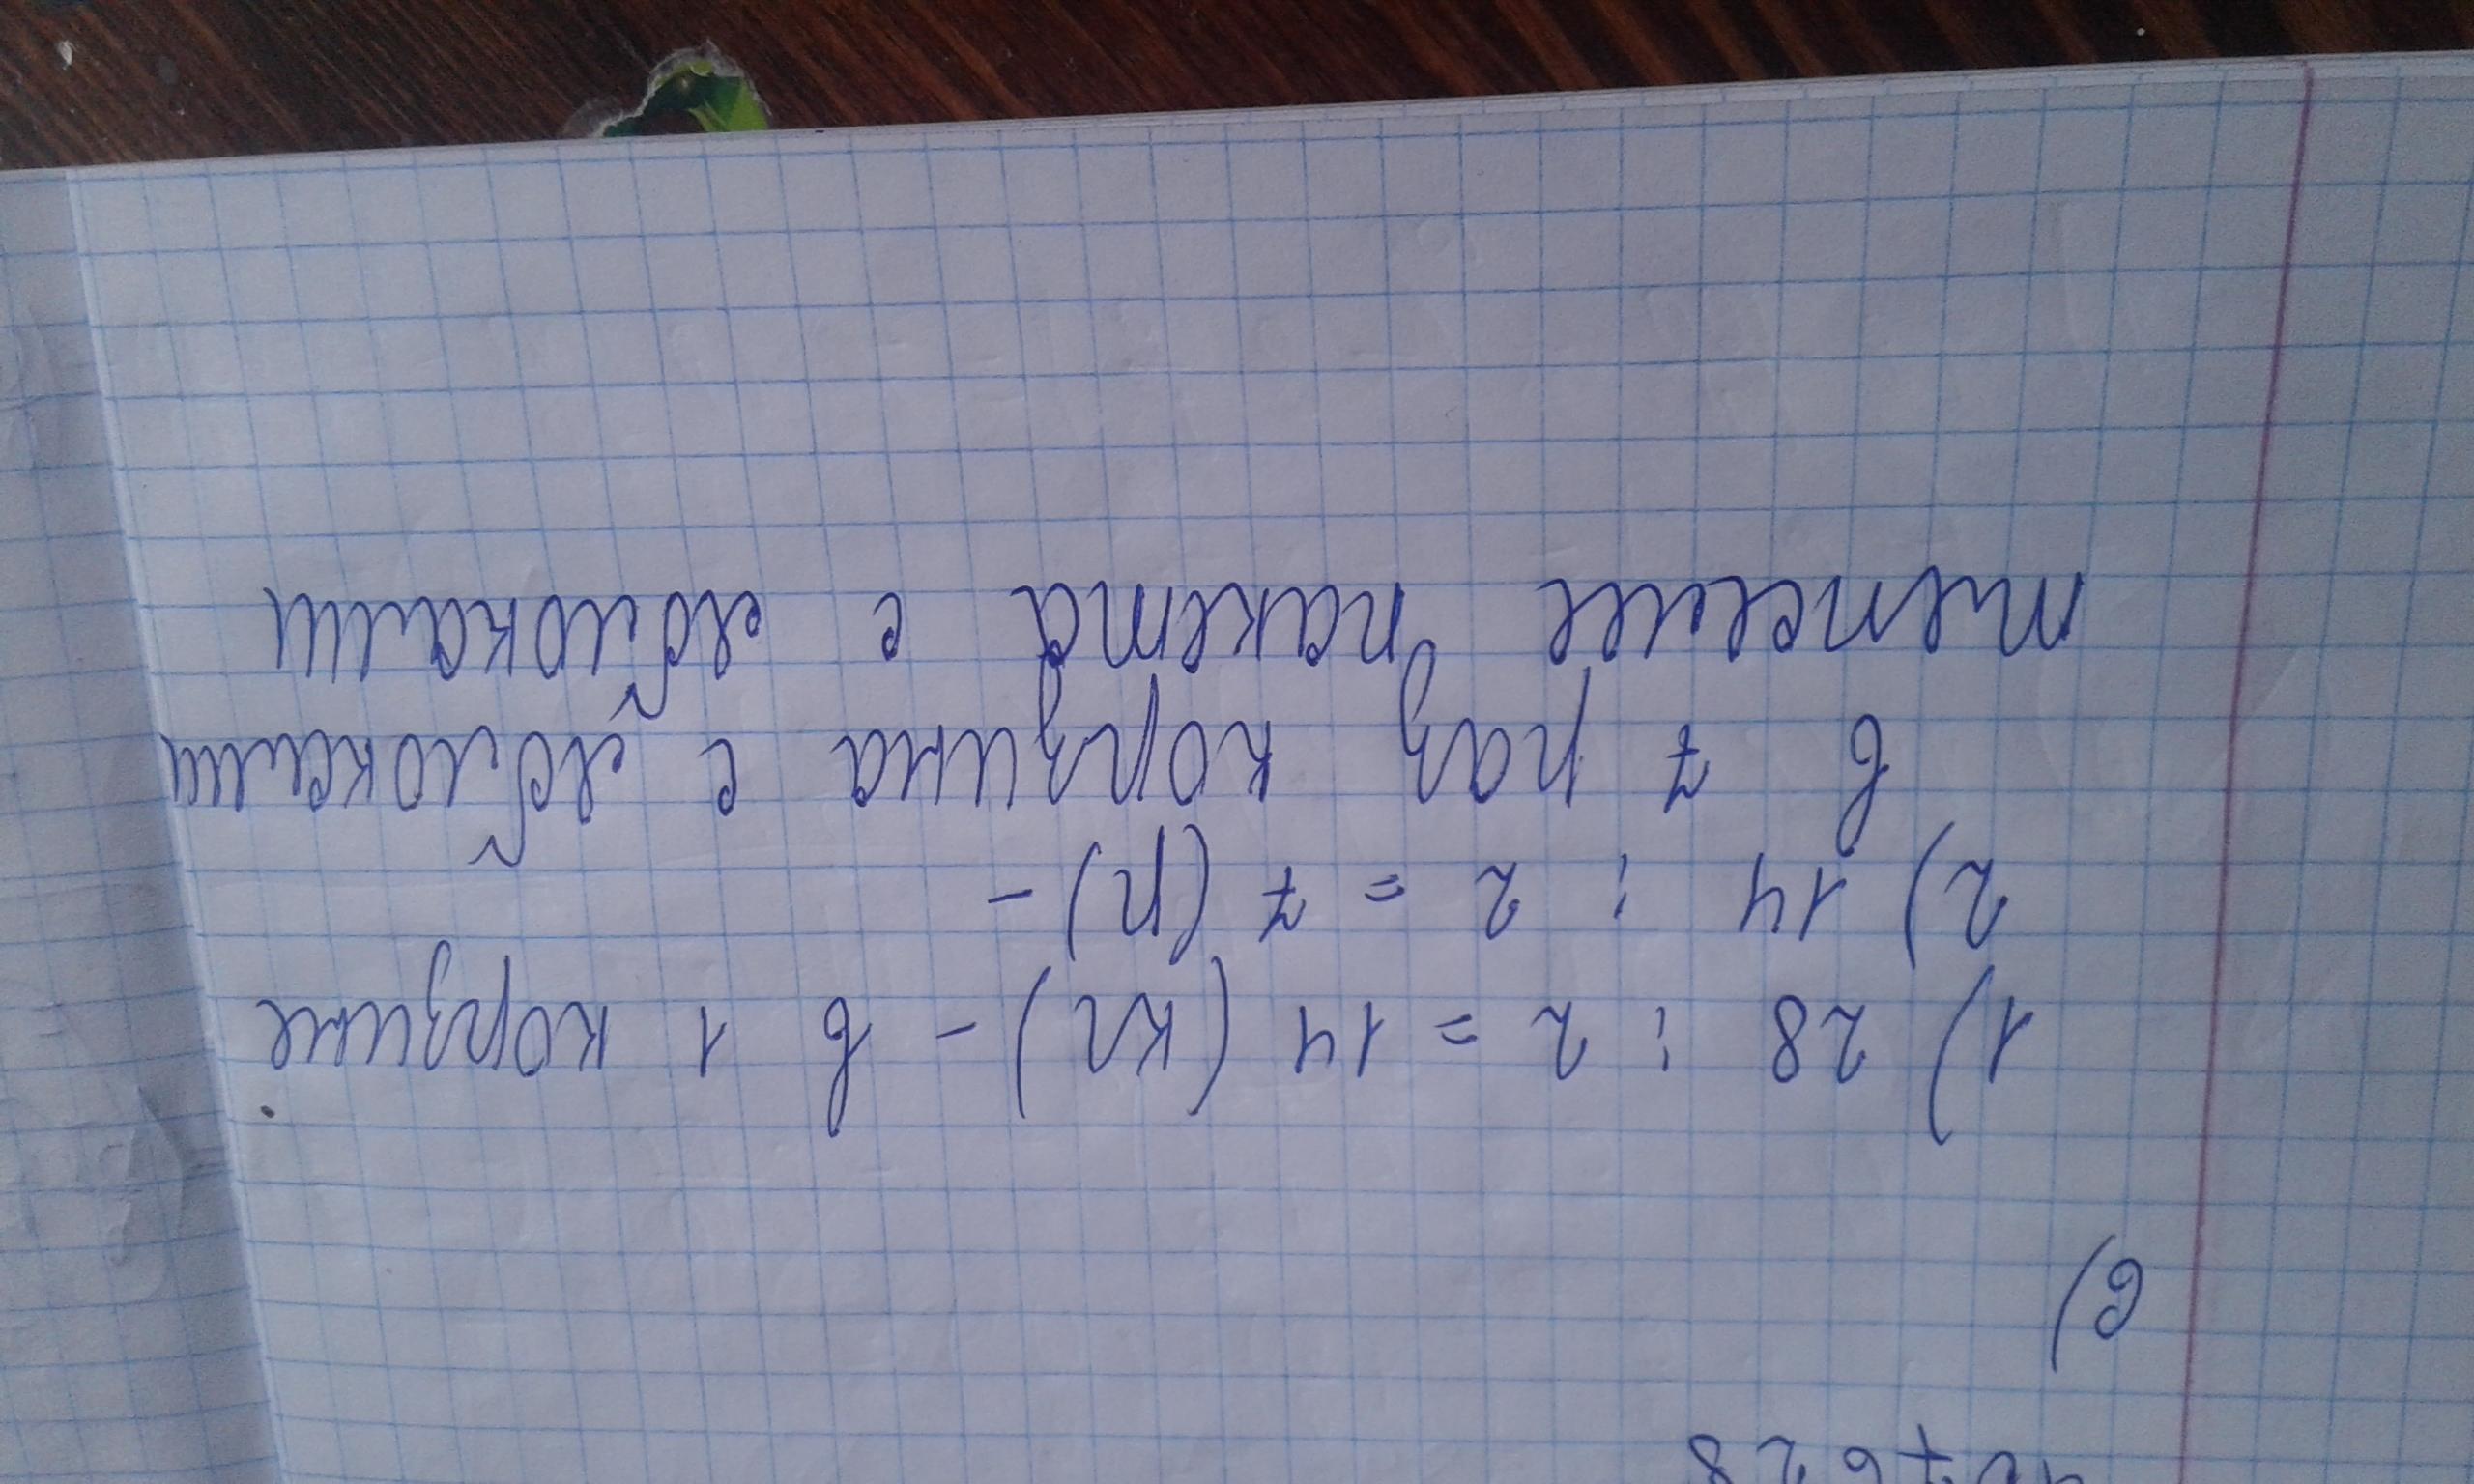 6)
1) 28 : 2 = 14 (кг) - в 1 корзине
2) 14 : 2 = 7 (р) -
в 7 раз корзина с яблоками
пакета с яблоками